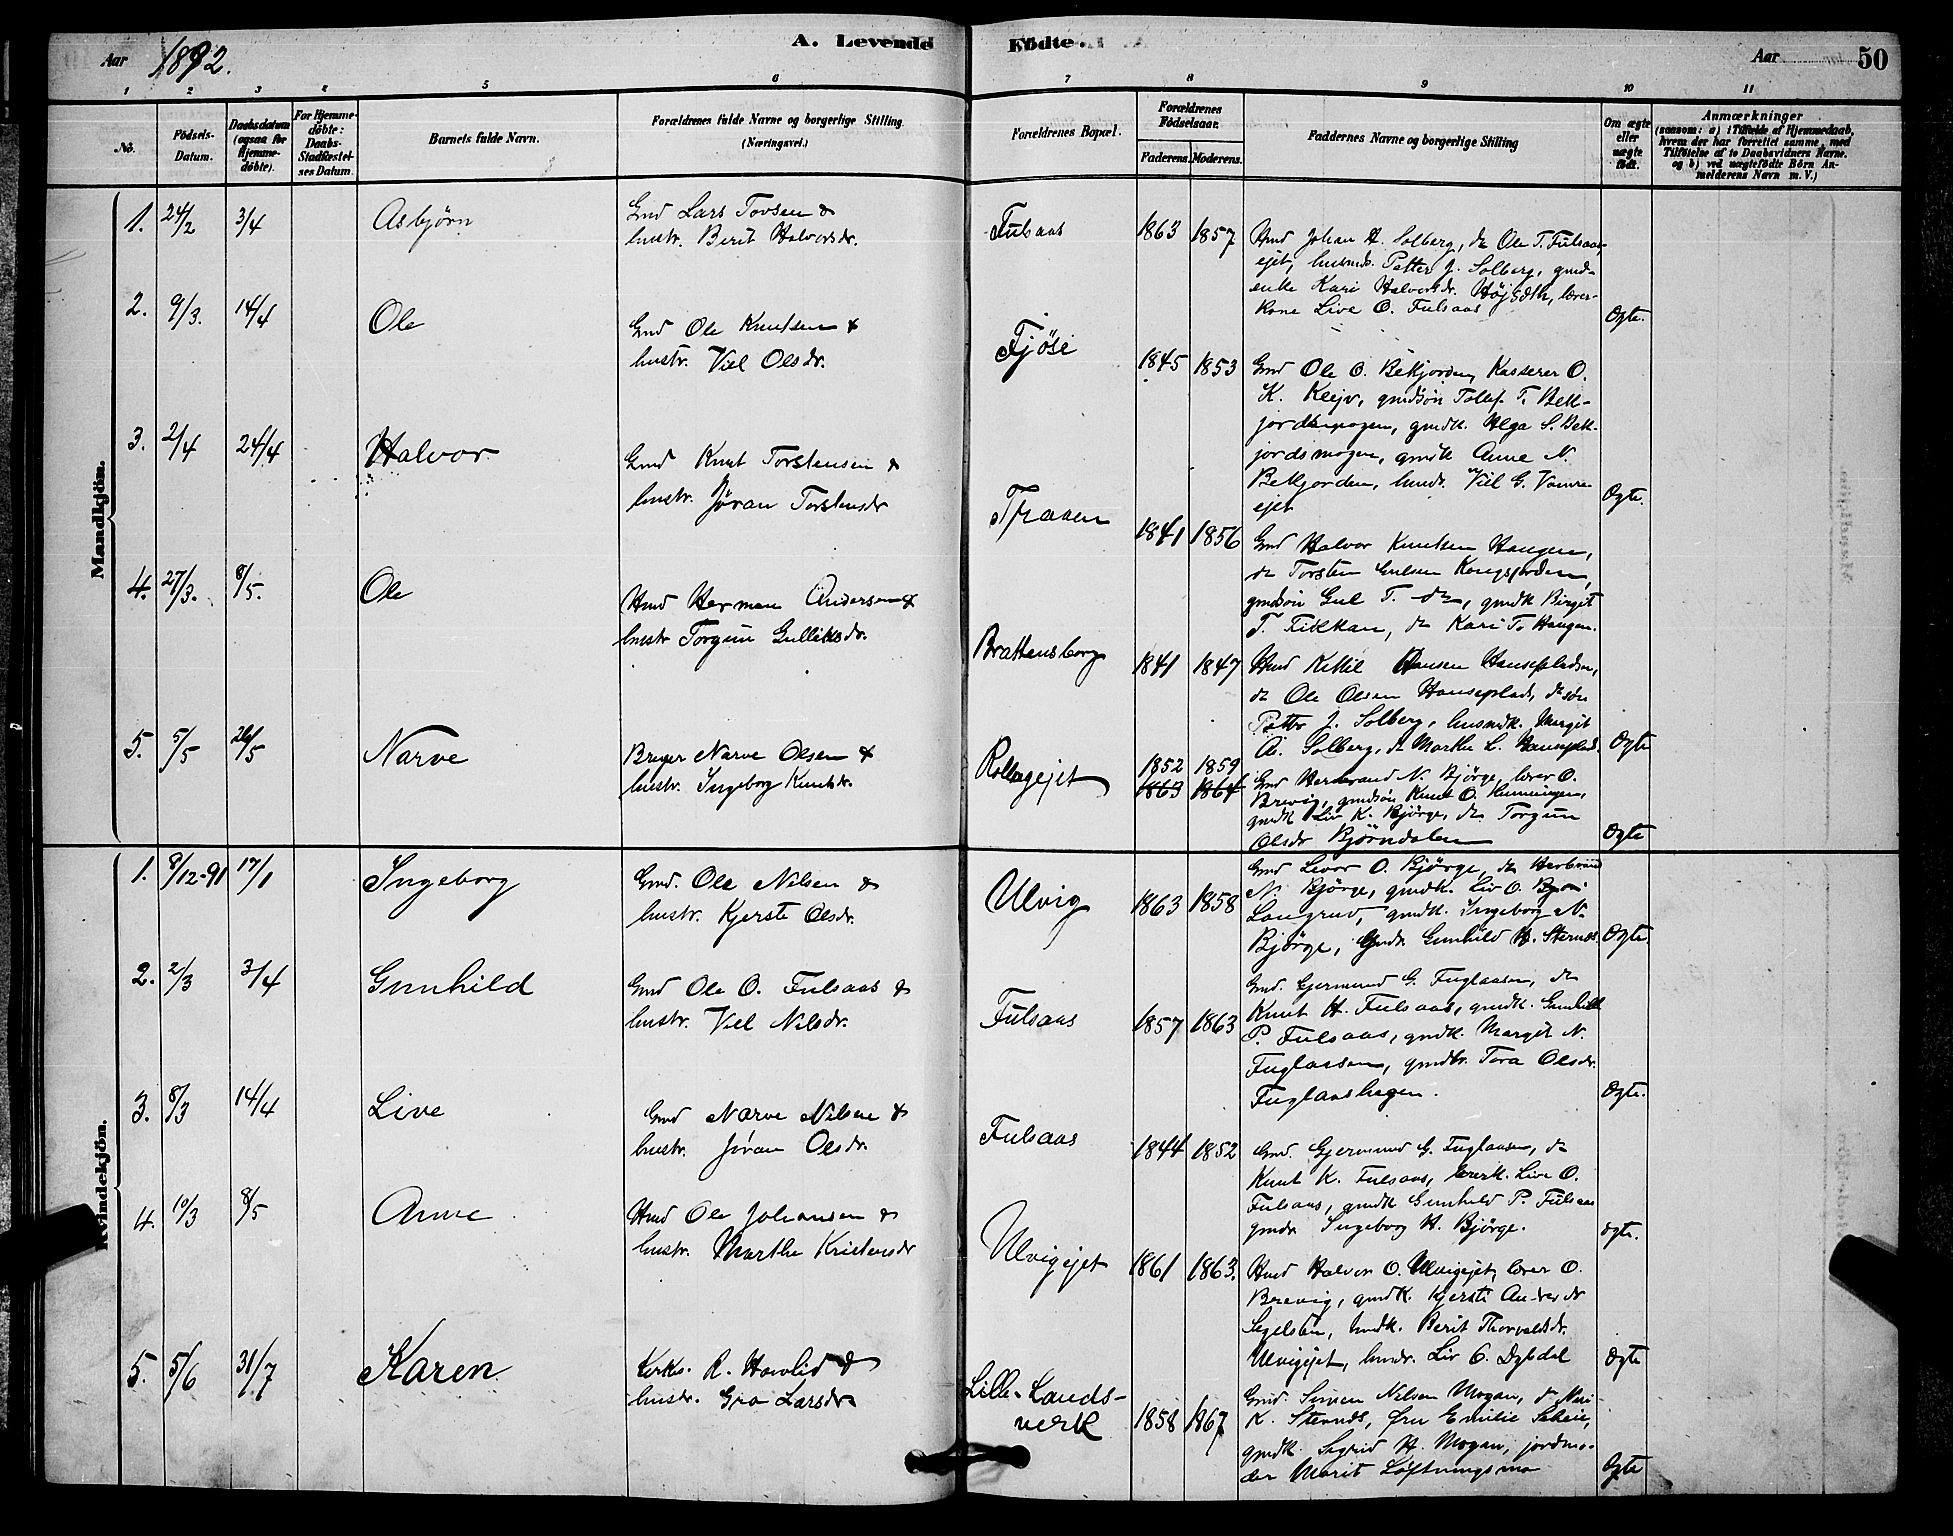 Aar 1892.
A. Levende
Födte.
Aar
50
1 2 3 4 5 6 7 8 9 10 11
No.
Födsels-
Datum.
Daabsdatum
(ogsaa for
Hjemme-
döbte).
For Hjemme-
döbte:
Daabs-
Stadfæstel-
ses Datum.
Barnets fulde Navn.
Forældrenes fulde Navne og borgerlige Stilling
(Næringsvei.)
Forældrenes Bopæl.
Forældrenes
Födselsaar.
Faderens. Moderens.
Faddernes Navne og borgerlige Stilling
Om ægte
eller
uægte
födt.
Anmærkninger
(saasom: a) i Tilfælde af Hjemmedaab,
hvem der har forrettet samme, med
Tilföielse af to Daabsvidners Navne.
og b) ved uægtefödte Börn An-
melderens Navn m. V.)
Mandkjön.
1. 24/2 3/4 Asbjörn
Gmd Lars Tovsen &
hustr. Berit Halvorsdr.
Fulsaas 1863 1857
Hmd Johan H. Solberg, do Ole T. Fulsaas-
ejet, husmds. Petter J. Solberg, gmd-
enke Kari Halvorsdr. lærer-
kone Live O. Fulsaas
Ægte.
2. 9/3. 14/4 Ole
Gmd Ole Knutsen &
hustr. Viel Olsdr.
Fjöse 1845 1853
Gmd Ole O. Bekjorden, Kasserer O.
K. Kleiv, gmdsön Tollef T. Bek-
jordsmogen, gmdk. Helga S. Bek-
jordsmogen, gmdk Anne N.
Bekjorden, hmdr. Viel G.
ejet
Ægte.
3. 2/4 24/4 Halvor
Gmd Knut Torstensen &
hustr. Jøran Torstensdr
Traaen 1841 1856
Gmd Halvor Knutsen Haugen,
do Torsten Gulsen Kongsjorden,
gmdsön Gul T. do, gmdk Birgit
T. Fikkan, do Kari T. Haugen.
4. 27/3. 8/5. Ole
Hmd Herman Andersen &
hustr Torgun Gulliksdr.
Brattensborg 1841 1847
Hmd Kittil Hansen Hansepladsen,
do Ole Olsen Hanseplads, do sön
Petter J. Solberg, husmdk. Margit
A. Solberg, do Marthe L. Hanseplads.
Ægte
5. 5/5 26/5 Narve
Bruger Narve Olsen &
hustr. Ingeborg Knutsdr.
Rollagejet 1852 1859
1863 1864
Gmd Herbrand N. Bjørge, lærer O.
Brevig, gmdsön Knut O.
gmdk Liv K. Bjørge, do Torgun
Olsdr Björndalen
Ægte
Kvindekjön.
1. 8/12-91 17/1 Ingeborg
Gmd. Ole Nilsen &
hustr. Kjersti Olsdr.
Ulvig 1863 1858
Gmd Levor O. Bjørge, do Herbrand
N. Bjørge, gmdk. Liv O.
gmdk. Ingeborg N.
Bjørge, Gmdr Gunhild H. Sternes.
Ægte.
2. 2/3 3/4 Gunhild
Gmd Ole O. Fulsaas &
hustr. Viel Nilsdr.
Fulsaas 1857 1863
Gmd. Gjermund G. Fuglaasen, do
Knut H. Fulsaas, gmdk. Gunhild
P. Fulsaas, gmdk. Margit N.
Fuglaasen, gmdtr. Tora Olsdr.
Fuglaashagen.
Ægte.
3. 8/3 14/4 Live
Gmd Narve Nilsen &
hustr. Jøran Olsdr.
Fulsaas 1844 1852
Gmd. Gjermund G. Fuglaasen, do
Knut K. Fulsaas, lærerk. Live O.
Fulsaas, gmdk Gunhild P. Fulsaas
gmdr. Ingeborg H. Bjørge.
Ægte.
4. 10/3 8/5 Anne
Hmd Ole Johansen &
hustr. Marthe Kristensdr
Ulvigejet 1861 1863.
Hmd Halvor O. Ulvigejet, lærer O.
Brevig, gmdk. Kjersti Andersdr
hmdk. Berit Thorvaldsdr.
Ulvigejet, hmdr. Liv G. Dybdal
Ægte
5. 5/6 31/7 Karen
Kirkes. R. Havlid &
hustr. Gro Larsdr
Lille-Lands-
verk 1858 1867
Gmd. Simen Nilsen Mogan,
K. Sternes, Fru Emilie Scheie,
gmdk. Sigrid H. Mogan, jordmo-
der Marit
Ægte